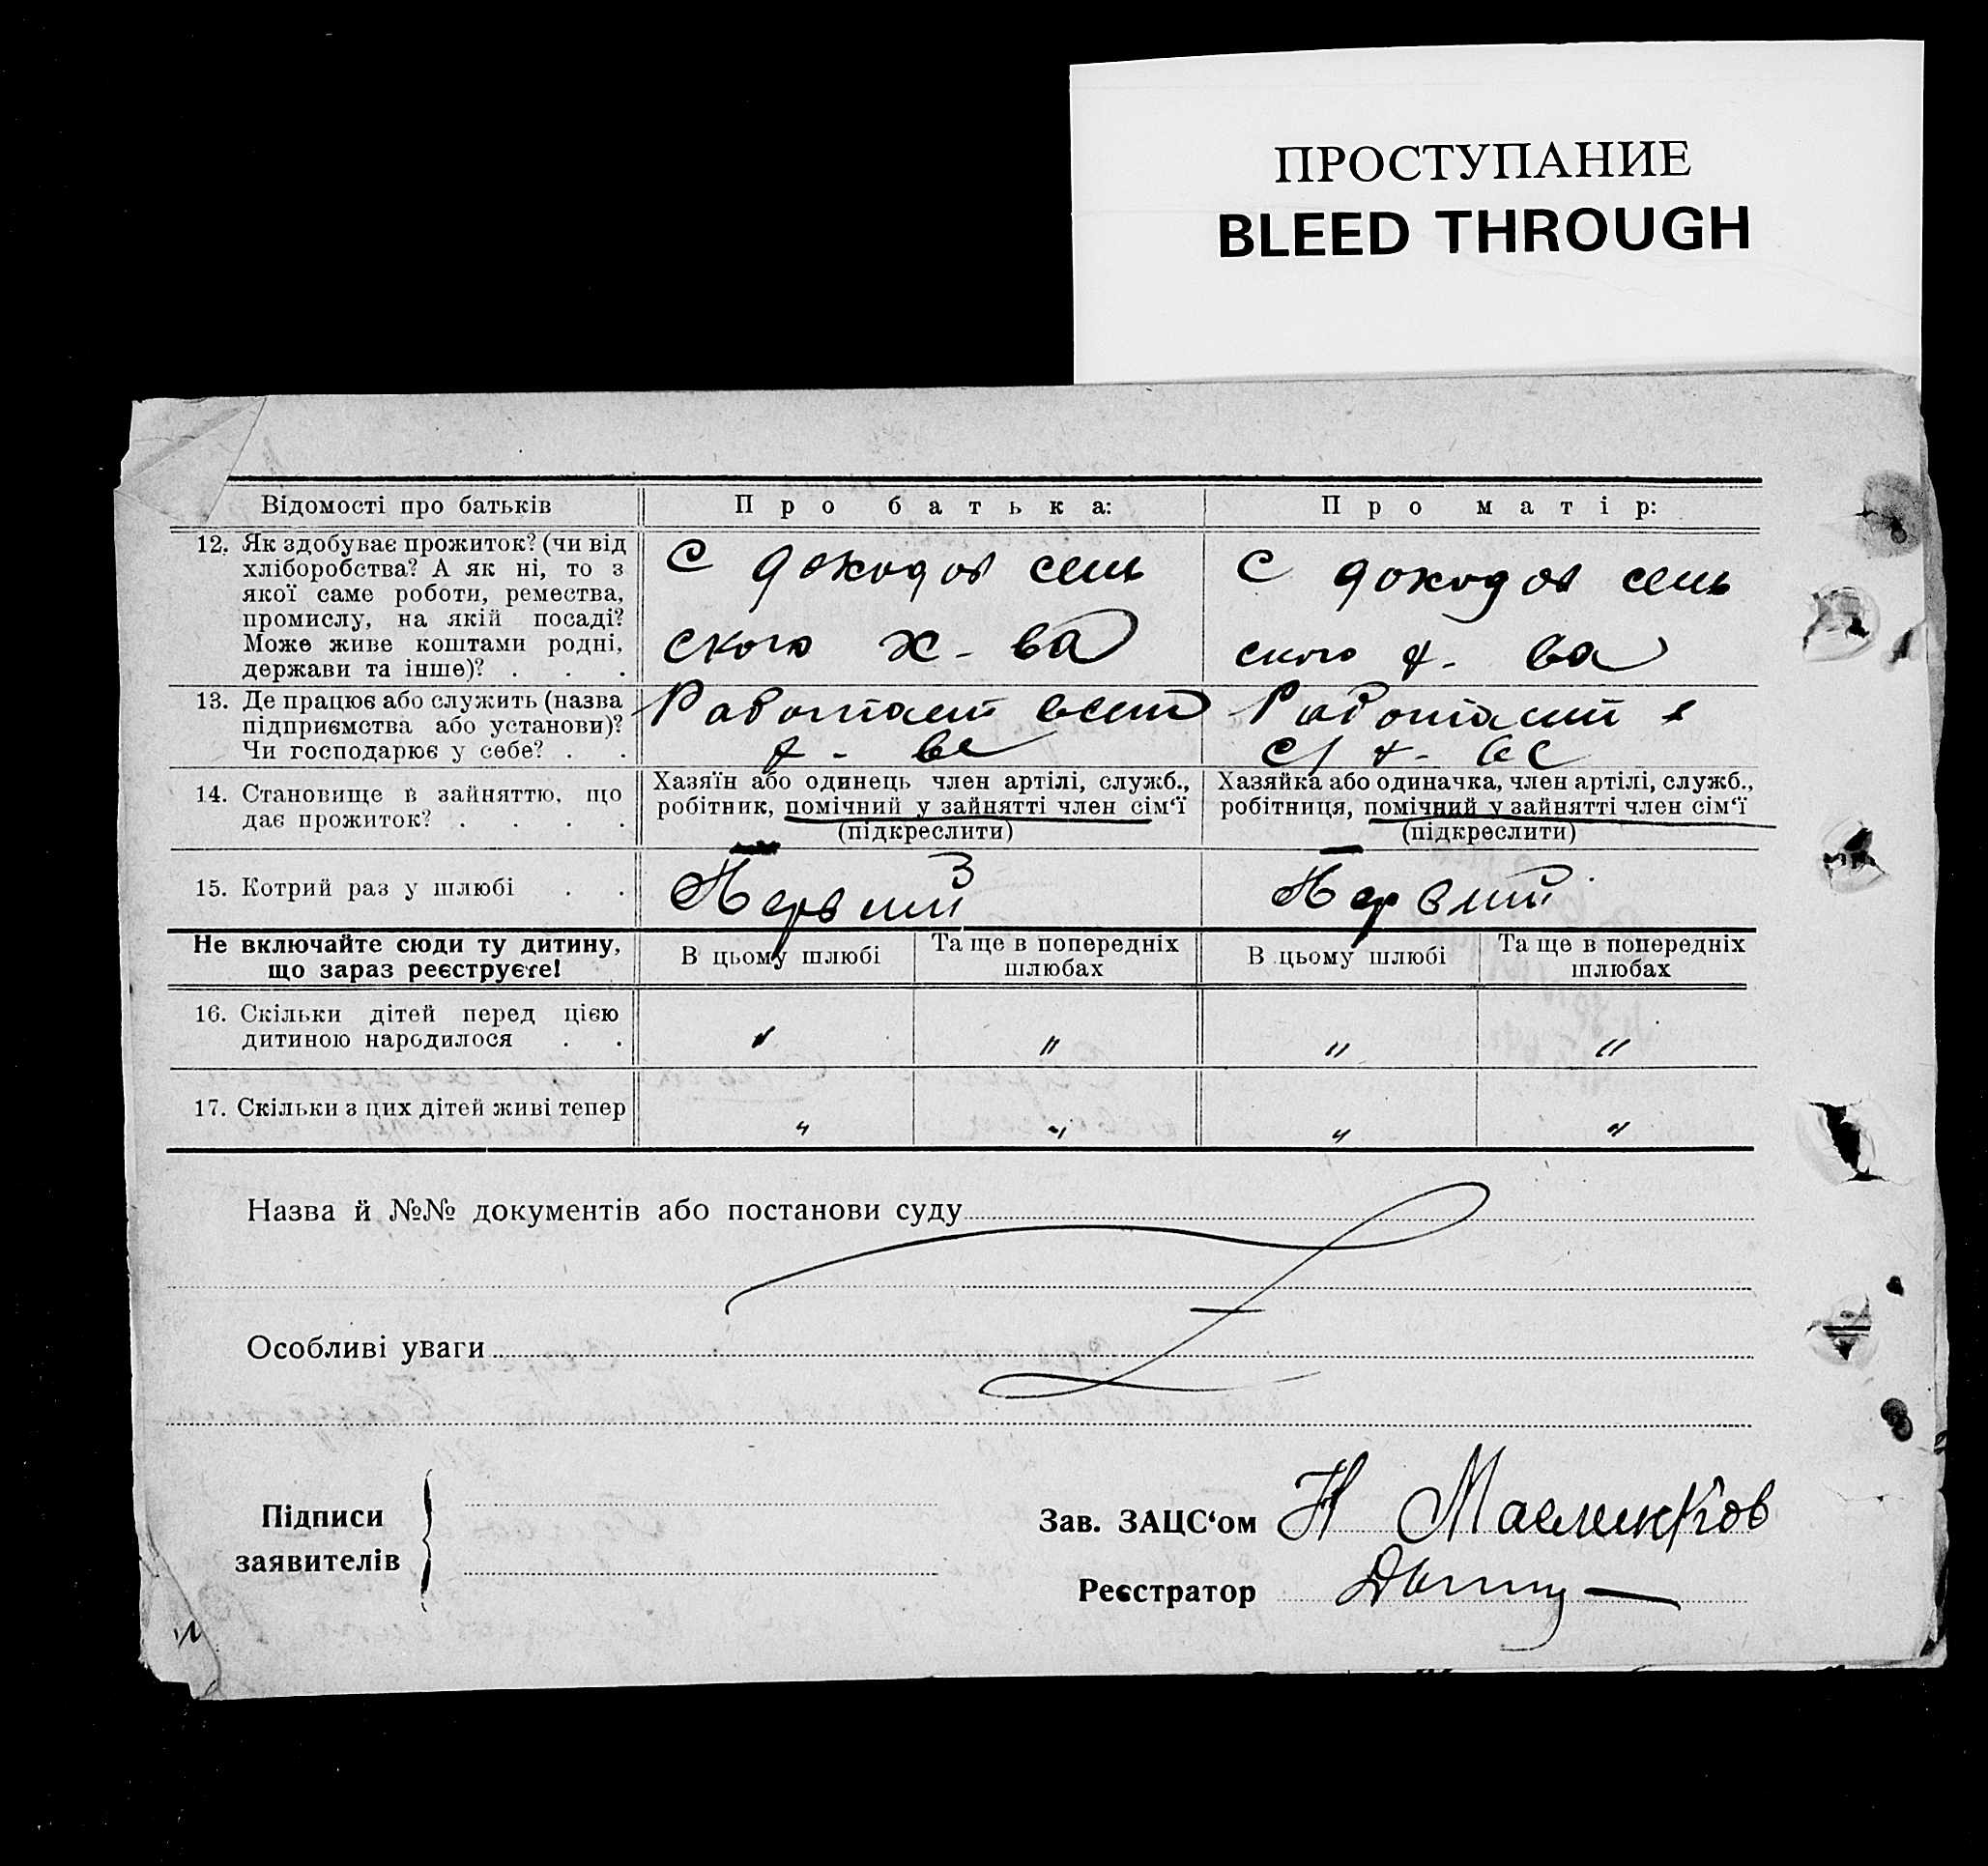 ПРОСТУПАНИЕ
BLEED THROUGH
Відомості про батьків
Про батька:
Про матір:
12. Як здобуває прожиток? (чи від
хліборобства? А як ні, то з
якої саме роботи, ремества,
промислу, на якій посаді?
Може живе коштами родні,
держави та інше)? . . .
С доходов сель
ского х-ва
С доходов сель
ского х-ва
13. Де працює або служить (назва
підприємства або установи)?
Чи господарює у себе? . .
Работает
х-ве
Работает в
с/х-ве
14. Становище в зайняттю, що
дає прожиток? . . . .
Хазяїн або одинець член артілі, служб.,
робітник, помічний у зайнятті член сім‘ї
(підкреслити)
Хазяйка або одиначка, член артілі, служб.,
робітниця, помічний у зайнятті член сім‘ї
(підкреслити)
15. Котрий раз у шлюбі . .
Первый
Первый
Не включайте сюди ту дитину,
що зараз реєструєте!
В цьому шлюбі
Та ще в попередніх
шлюбах
В цьому шлюбі
Та ще в попередніх
шлюбах
16. Скільки дітей перед цією
дитиною народилося . .
" " " "
17. Скільки з цих дітей живі тепер
" " " "
Назва й №№ документів або постанови суду
Особливі уваги
Підписи
заявителів
Зав. ЗАЦС‘ом Н
Реєстратор